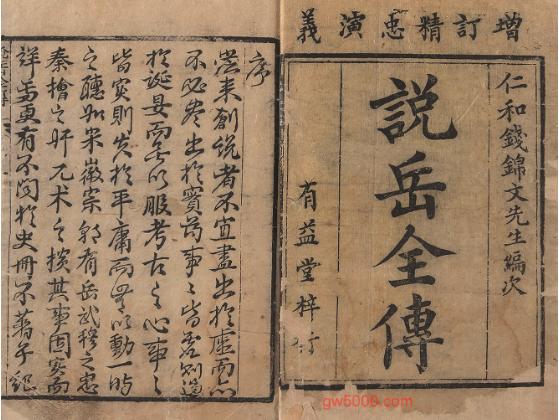 增訂精忠演義
仁和錢錦文先生編次
說岳全傳
有益堂梓行
序
從來創說者不宜盡出於虛而亦
不必盡出於實苟事〻皆虛則過
於誕妄而無以服考古之心事〻
皆實則失於平庸而無以動一時
之聽如宋徽宗朝有岳武穆之忠
秦檜之奸兀朮之橫其事固實而
詳焉更有不聞於史冊不著於紀
gw5000.com